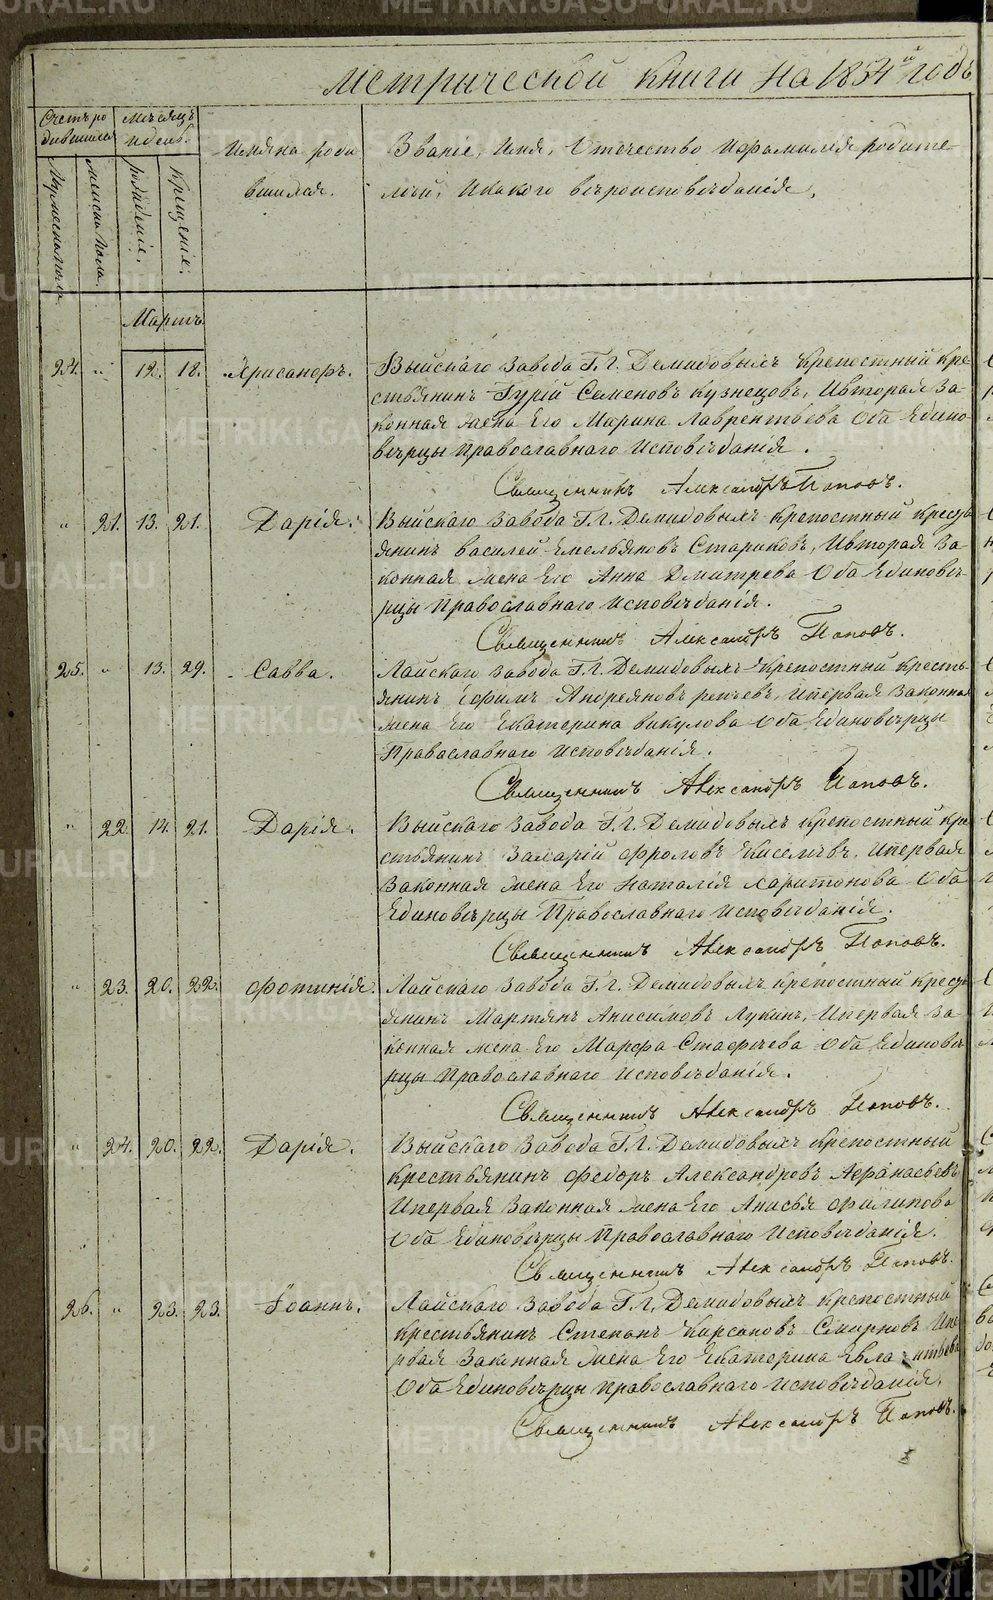 METRIKI.GASO-URAL.RU
метрической книги на 1854й годъ
Счетъ родившихся
Мужеска пола
женска пола
Мѣсяцъ и день.
рожденіе.
крещеніе.
Имяна родившихся.
Званіе, Имя, Отечество и фамилія родителей, и какого вѣроисповѣданія,
Мартъ.
24. „ 12. 18. Хрисанфъ. Выйскаго завода Г.Г. Демидовыхъ крепостный кре-
стьянинъ Гурій Семеновъ Кузнецовъ, и вторая за-
конная жена Его Марина Лаврентьева Оба Едино-
вѣрцы Православнаго Исповѣданія.
Священникъ Александръ Поповъ.
„ 21. 13. 21. Дарія. Выйскаго завода Г.Г. Демидовыхъ крепостный кресть
янинъ Василей Емельяновъ Стариковъ, и вторая за-
конная жена Его Анна Дмитрева Оба Единовѣ-
рцы Православнаго исповѣданія.
Священникъ Александръ Поповъ.
25. „ 13. 29. Савва. Лайскаго завода Г.Г. Демидовыхъ крепостный кресть-
янинъ Ефимъ Андреяновъ, и первая законная
жена Его Екатерина Викулова Оба Единовѣрцы
Православнаго исповѣданія.
Священникъ Александръ Поповъ.
„ 22. 14. 21. Дарія. Выйскаго завода Г.Г. Демидовыхъ крепостный кре
стьянинъ Захарій Фроловъ Киселевъ, и первая
законная жена Его Наталія Харитонова Оба
Единовѣрцы Православнаго исповѣданія.
Священникъ Александръ Поповъ.
„ 23. 20. 22. Фотинія. Лайскаго завода Г.Г. Демидовыхъ крепостный кресть
янинъ Мартянъ Анисимовъ Лукинъ, и первая за-
конная жена Его Марфа Стафѣева Оба Единовѣ
рцы Православнаго исповѣданія.
Священникъ Александръ Поповъ.
„ 24. 20. 22. Дарія. Выйскаго завода Г.Г. Демидовыхъ крепостный
крестьянинъ Федоръ Александровъ Афанасьевъ
и первая законная жена Его Анисья Филипова
Оба Единовѣрцы Православнаго Исповѣданія.
Священникъ Александръ Поповъ.
26. „ 23. 23. Іоаннъ. Лайскаго завода Г.Г. Демидовыхъ крепостный
крестьянинъ Степанъ Кирсановъ Смирновъ и пе
рвая законная жена Его Екатерина
Оба Единовѣрцы Православнаго исповѣданія.
Священникъ Александръ Поповъ.